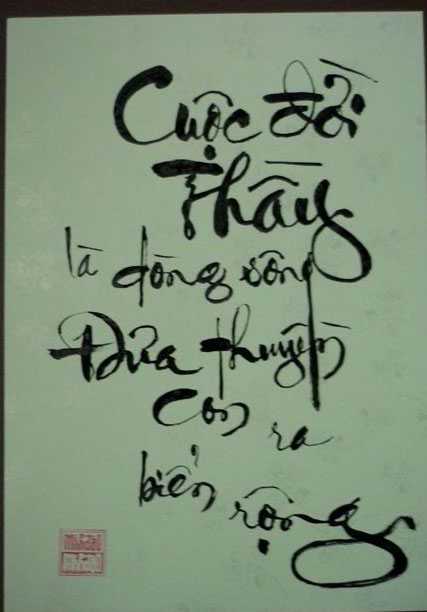 Cuộc đời
Thầy
là dòng sông
Đưa thuyền
con ra
biển rộng